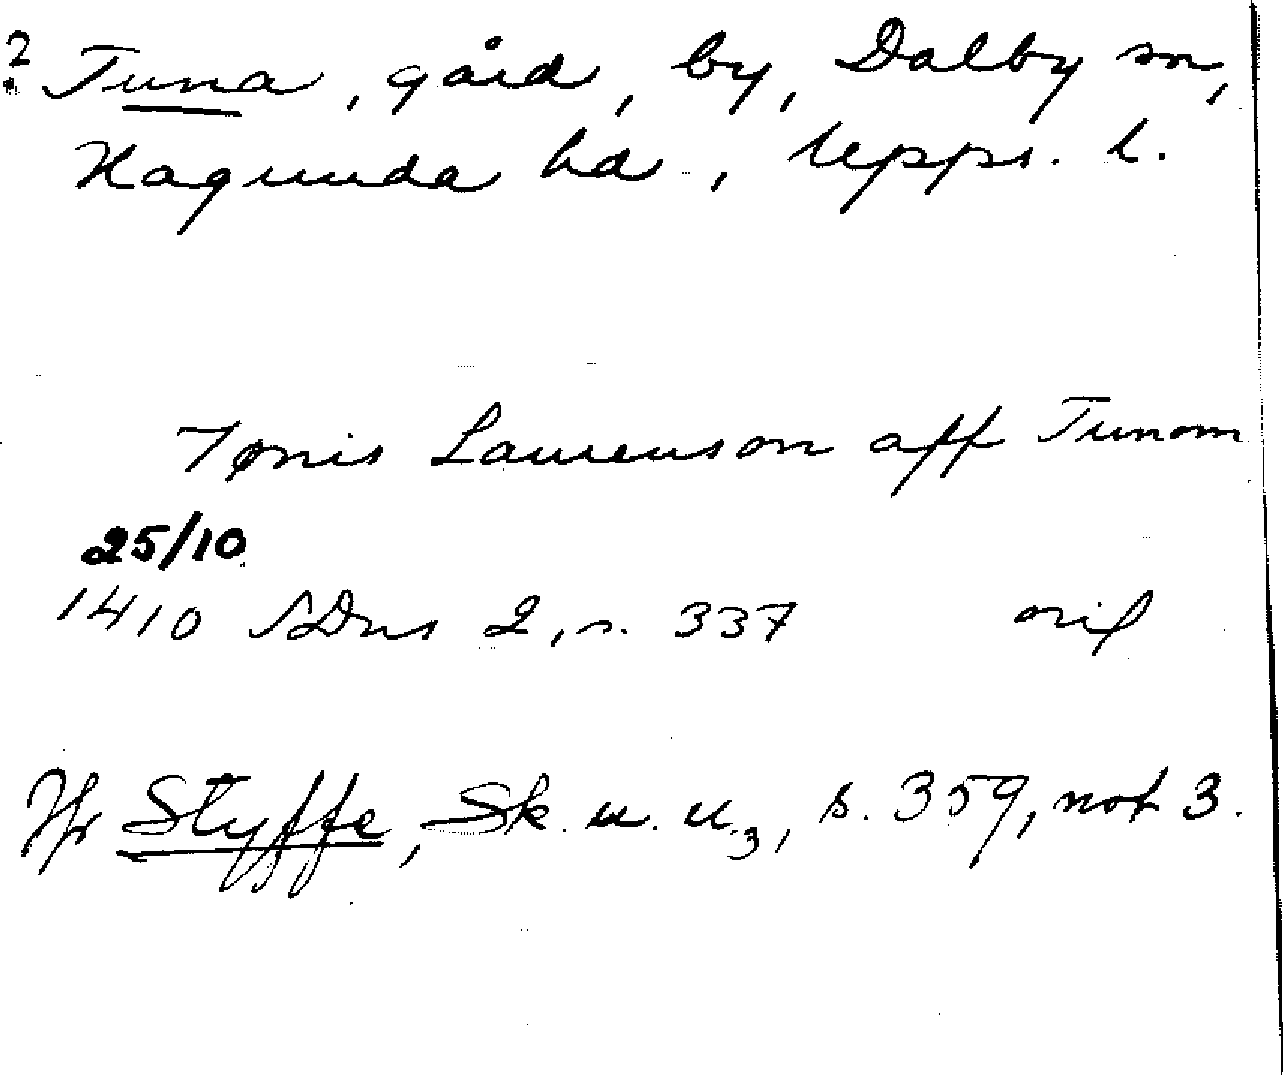 ? Tuna, gård, by, Dalby sn,
Hagunda hd, Upps. l.
Tønis Laurenson aff Tunom
25/10
1410 SDns 2, s. 337 oril
Jfr Styffe, Sk. u. u.3, s. 359, not 3.